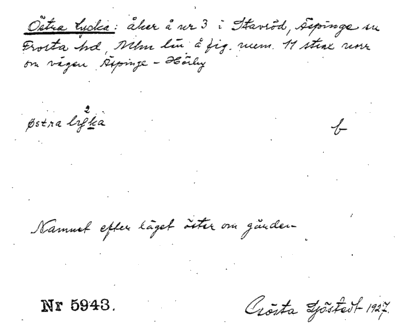 Östra lycka: åker å nr 3 i Stavröd, Äspinge sn
Frosta hd, Mlm län å fig. mem. 11 strax norr
om vägen Äspinge - Hörby
2
østra lyka
f
Namnet efter läget öster om gården
Nr 5943.
Gösta Sjöstedt 1927.